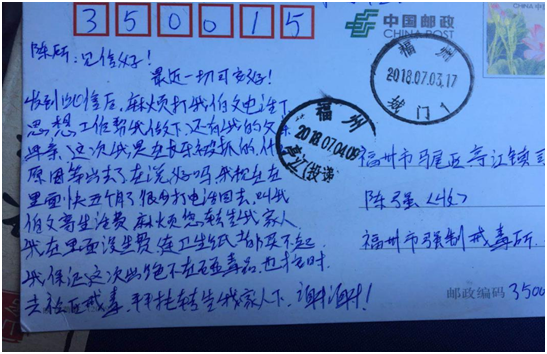 350015
中国邮政
CHINA POST
陈所:见信好!
最近一切可安好!
收到此信后,麻烦打我伯父电话下
思想工作帮我做下,还有我的父亲
母亲,这次我是在长乐被抓的,什么
原因等出去了在说好吗,我现在在
里面快五个月了,很少打电话回去,叫我
伯父寄生活费,麻烦您转告我家人
我在里面没生费,连卫生纸都买不起
我保证这次出绝不在碰毒品,也按时
去社区戒毒,拜托转告我家人下,谢谢!
福州
2018.07.03.17
1
福州
2018.07.04.09
(投递
福州市马尾区亭江镇司
陈强(收)
福州市强制戒毒所
邮政编码 3500